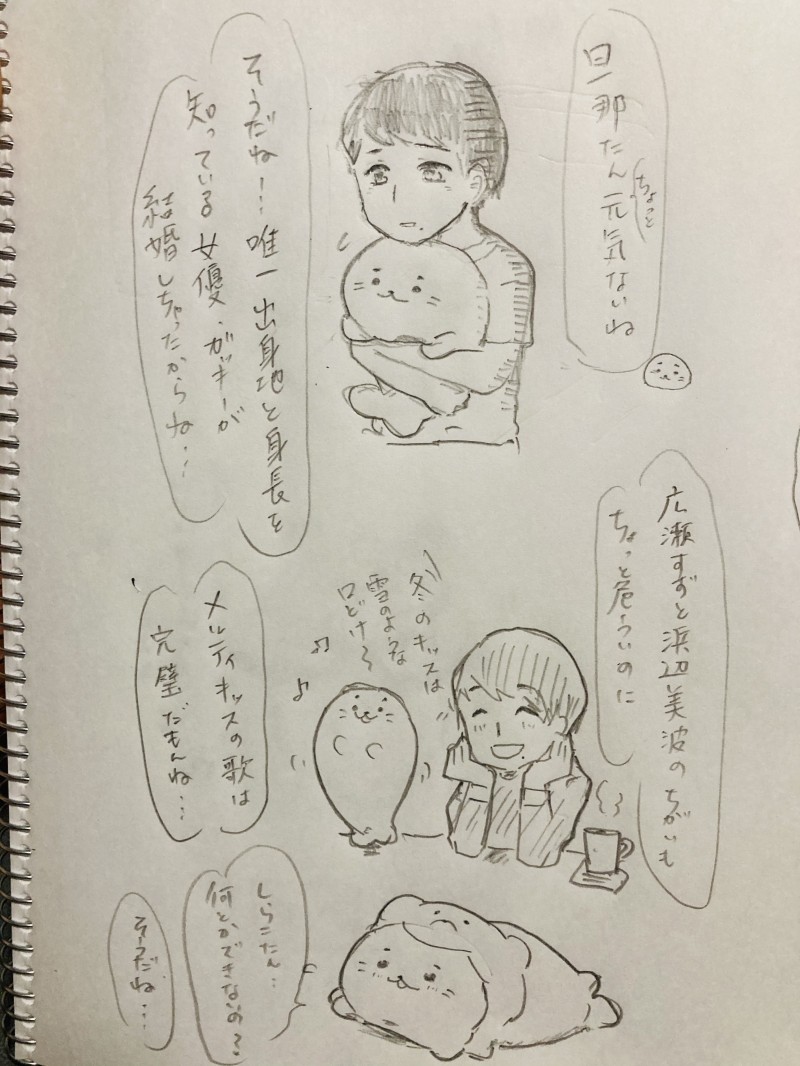 旦那たん元気ないね
ちょっと
そうだね…唯一出身地と身長を
知っている女優・ガッキーが
結婚しちゃったからね…
広瀬すずと浜辺美波のちがいも
ちょっと危ういのに
冬のキッスは
雪のような
口どけ〜
メルティキッスの歌は
完璧だもんね…
しらこたん…
何とかできないの?
そうだね…